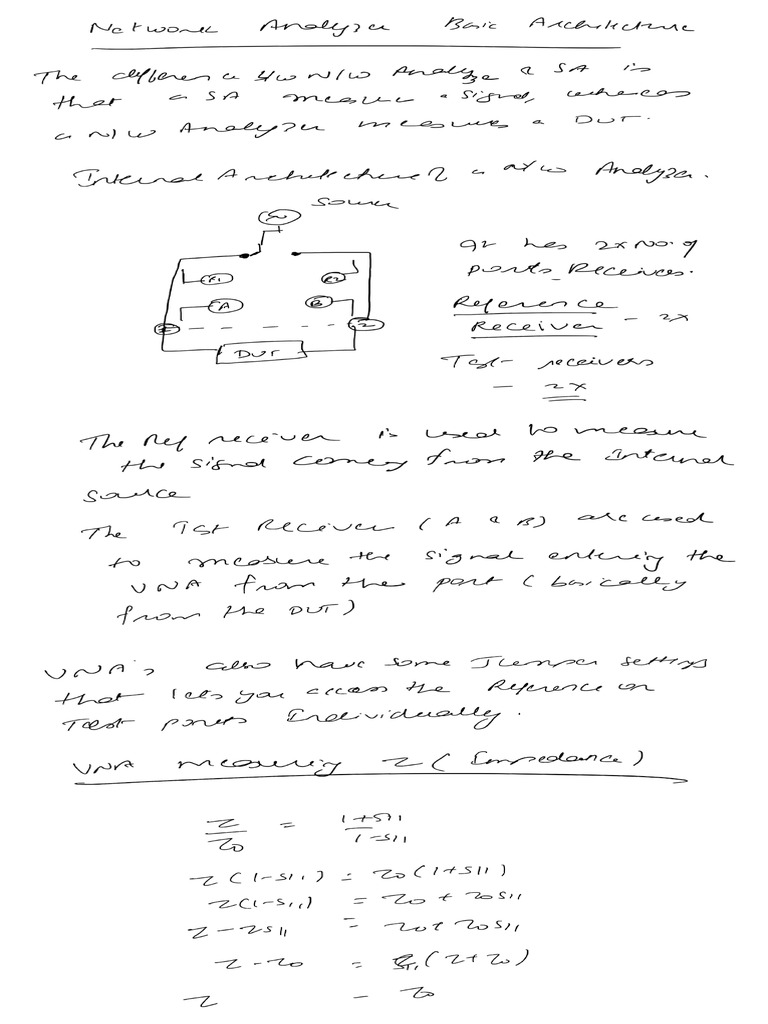 Network Analyzer Basic Architecture
The difference b/w N/W Analyzer & SA is
that a SA measure a signal, whereas
a N/W Analyzer measures a DUT.
Internal Architecture of a n/w Analyzer.
Source
~
R1 R2
A B
1 2
DUT
It has 2x No. of
ports Receivers.
Reference
Receiver - 2x
Test receivers
- 2x
The Ref receiver is used to measure
the signal coming from the internal
source
The Tst Receiver (A & B) are used
to measure the signal entering the
VNA from the port (basically
from the DUT)
VNA's also have some Jumper settings
that lets you access the Reference or
Test ports Individually.
VNA measuring Z (Impedance)
Z/Z0 = 1+S11/1-S11
Z(1-S11) = Z0(1+S11)
Z(1-S11) = Z0 + Z0S11
Z - ZS11 = Z0 + Z0S11
Z - Z0 = S11(Z+Z0)
Z - Z0